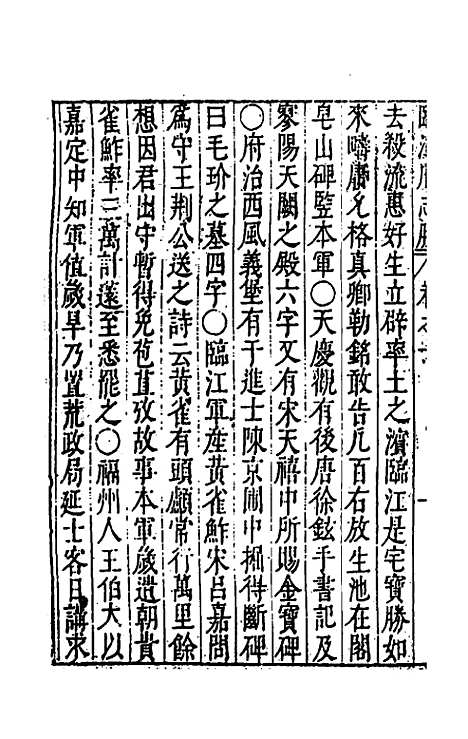 去殺流惠好生立辟率土之濱臨江是宅寶勝如
來疇庸允格真卿勒銘敢告凡百右放生池在閣
皂山碑監本軍○天慶觀有後唐徐鉉手書記及
寥陽天闕之殿六字又有宋天禧中所賜金寶碑
○府治西風義堡有于進士陳京圃中掘得斷碑
曰毛玠之墓四字○臨江軍產黃雀鮓宋呂嘉問
為守王荊公送之詩云黃雀有頭顱常行萬里餘
想因君出守暫得免苞苴攷故事本軍歲遺朝貴
雀鮓率三萬計蘧至悉罷之○福州人王伯大以
嘉定中知軍值歲旱乃置荒政局延士客日講求